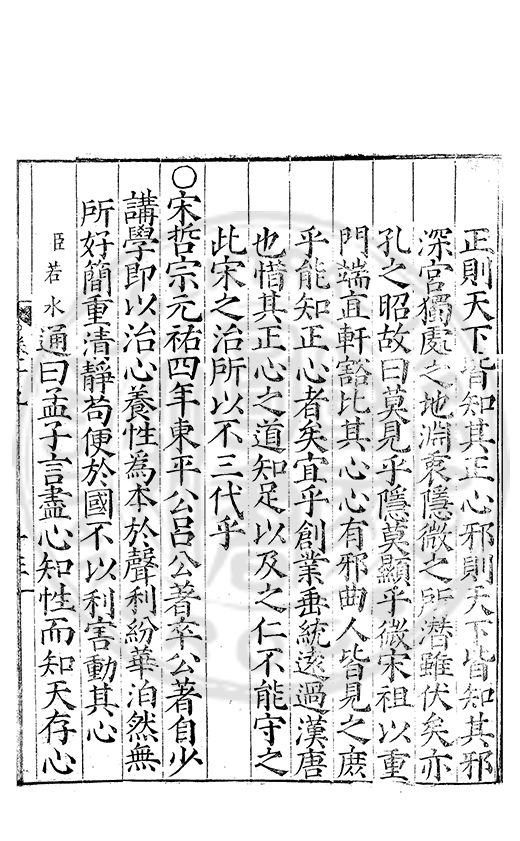 正則天下皆知其正心邪則天下皆知其邪
深宮獨處之地淵衷隱微之所潛雖伏矣亦
孔之昭故曰莫見乎隱莫顯乎微宋祖以重
門端直軒豁比其心心有邪曲人皆見之庶
乎能知正心者矣宜乎創業垂統遠過漢唐
也惜其正心之道知足以及之仁不能守之
此宋之治所以不三代乎
○宋哲宗元祐四年東平公呂公著卒公著自少
講學即以治心養性爲本於聲利紛華泊然無
所好簡重清靜苟便於國不以利害動其心
臣若水通曰孟子言盡心知性而知天存心